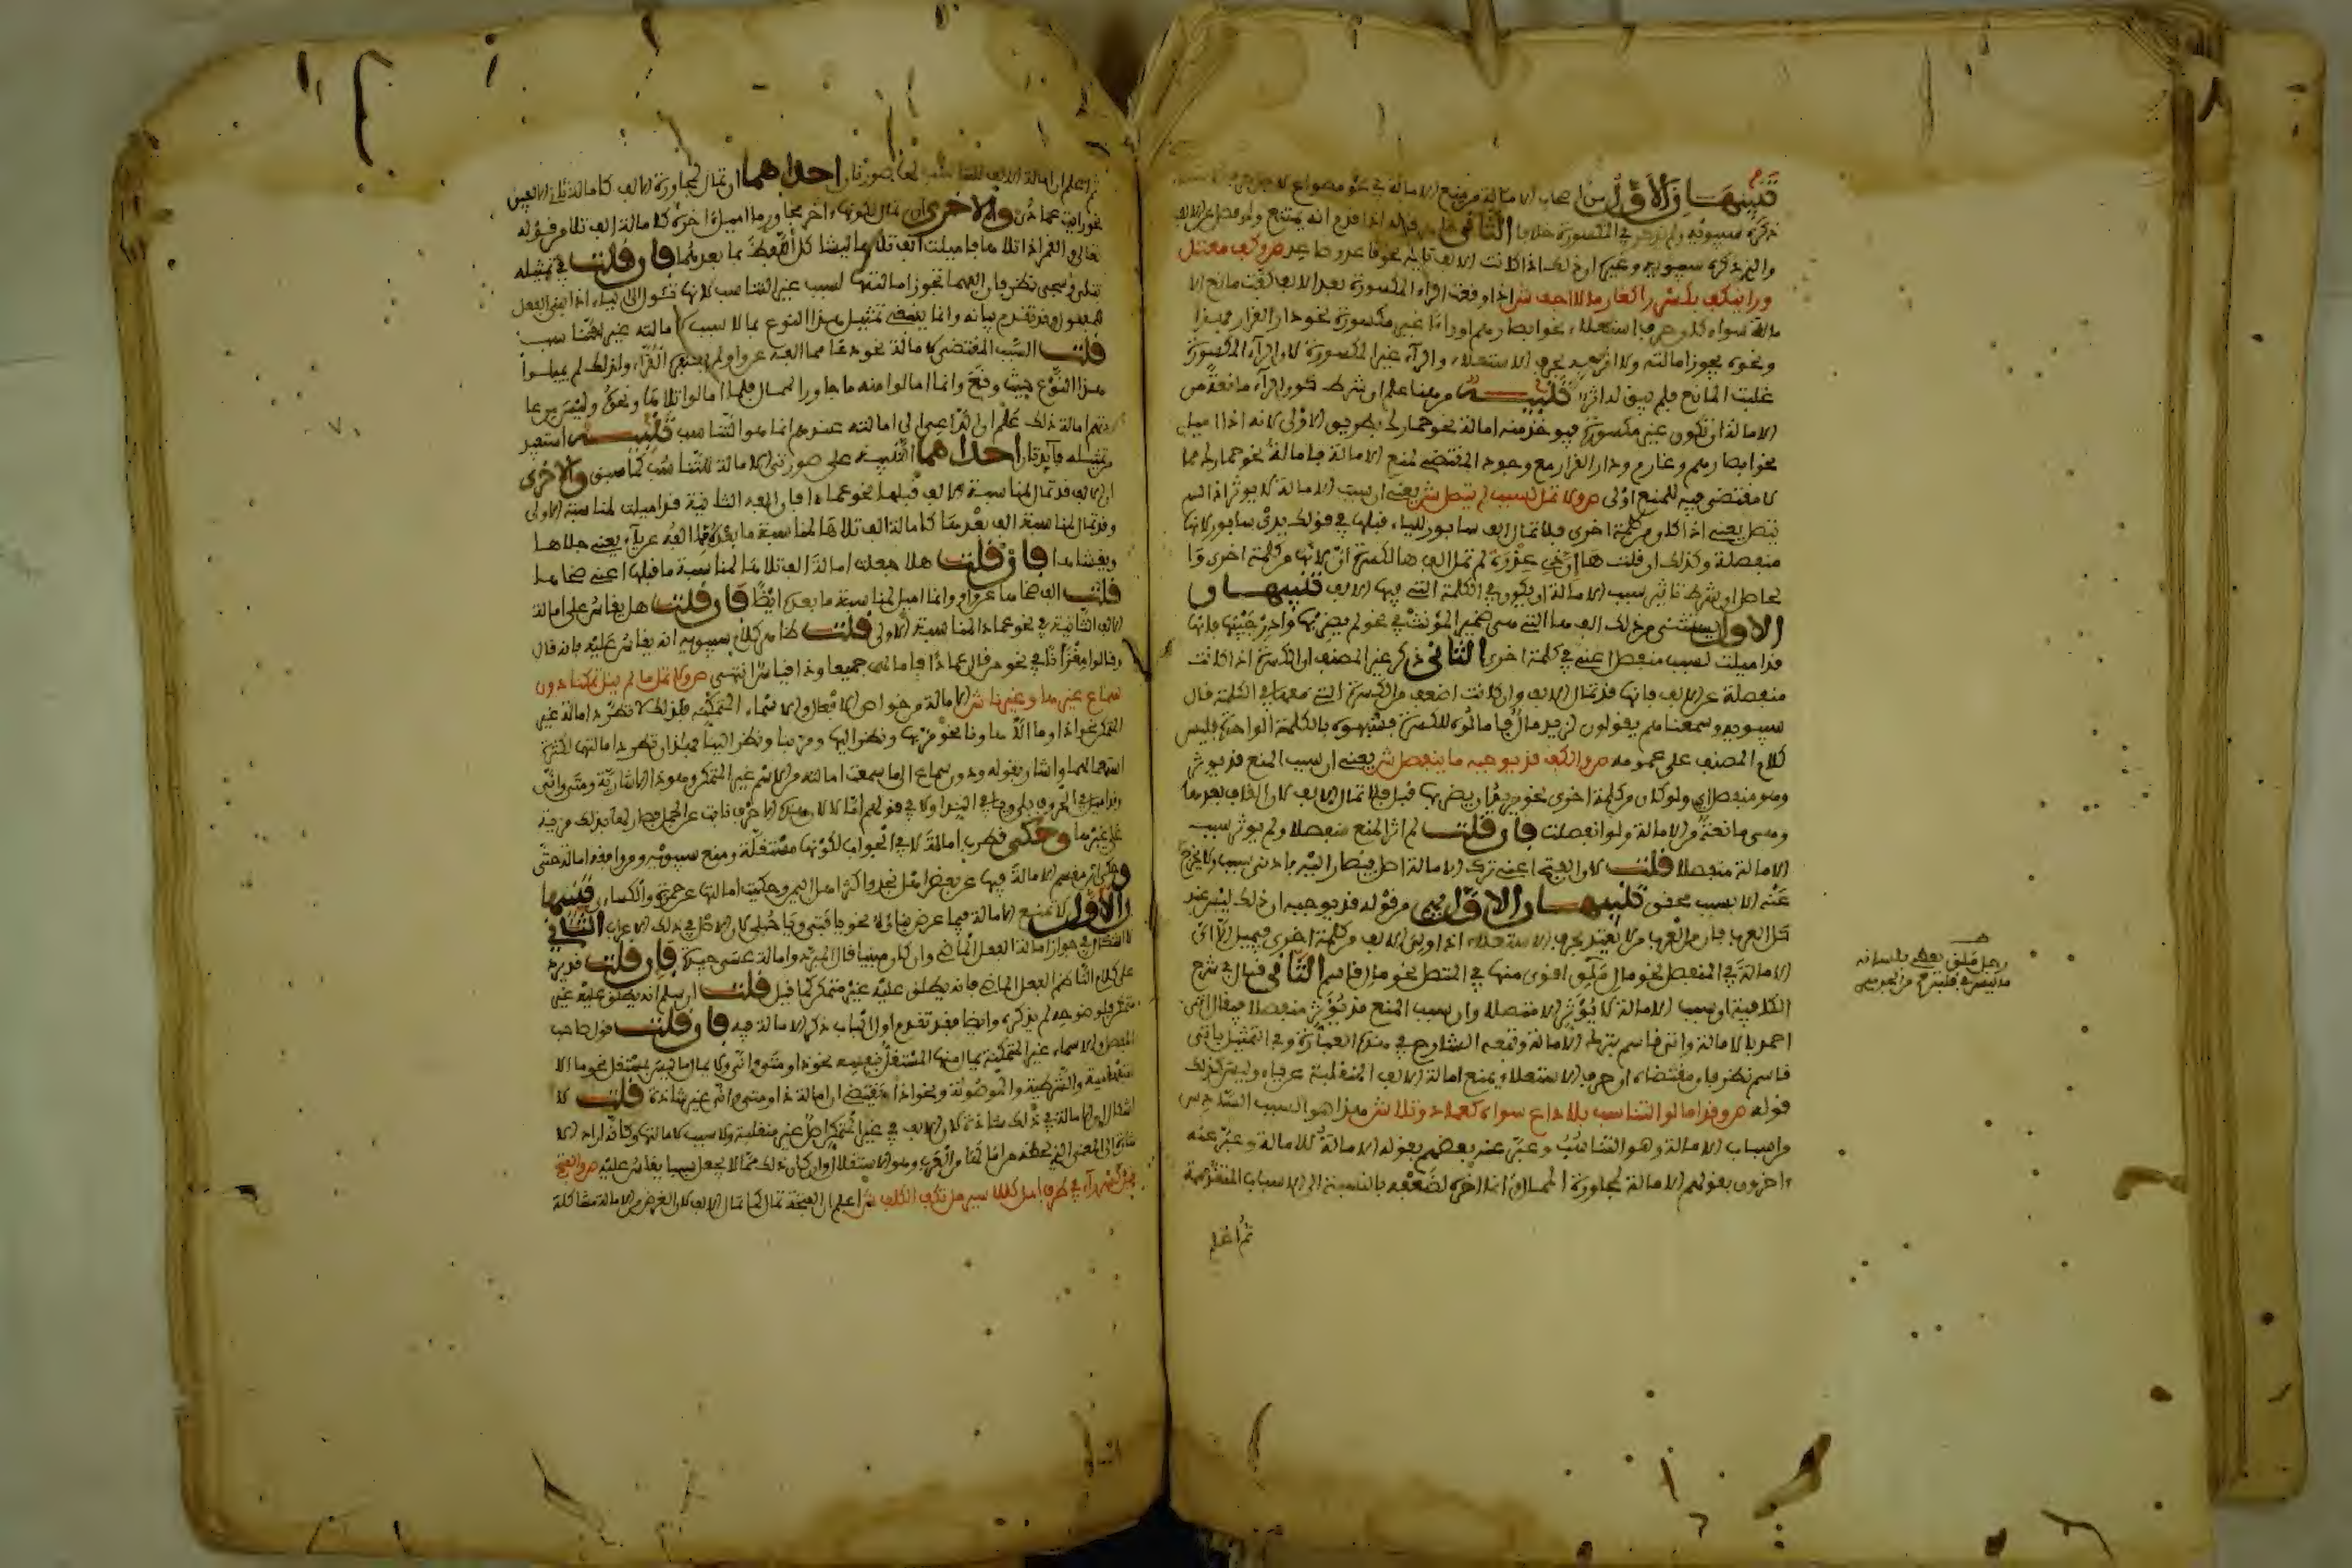 تنبيهان الأول من أصحاب الإمالة من يمنع الإمالة في نحو
ذكره سيبويه ... في المكسورة خلافا الثاني ... قوله إذا قدم أنه يمتنع ولو فصل عن الألف
والذي ذكره سيبويه وغيره أن ذلك إذا كانت الألف تليه نحو قاعد وصاعد ص وكف مستعل
ورا ينكف بكسر را كغارما لا أجفو ش إذا وقعت الراء المكسورة بعد الألف كفت مانع الا
مالة سواء كان حرف استعلاء نحو أبصارهم أو راء غير مكسورة نحو دار القرار فهذا
ونحوه يجوز إمالته ولا أثر فيه لحرف الاستعلاء والراء غير المكسورة لأن الراء المكسورة
غلبت المانع فلم يبق له أثر تنبيه من هنا علم أن شرط كون الراء مانعة من
الإمالة أن تكون غير مكسورة فيوخذ منه إمالة نحو حمارك بطريق الأولى لأنه إذا أميل
نحو أبصارهم وغارم ودار القرار مع وجود المقتضي لمنع الإمالة فإمالة نحو حمارك مما
لا مقتضي فيه للمنع أولى ص ولا تمل لسبب لم يتصل ش يعني أن سبب الإمالة لا يوثر إذا لم
يتصل يعني إذا كان من كلمة أخرى فلا تمال ألف سابور للياء قبلها في قولك يدي سابور لأنها
منفصلة وكذلك إن قلت ها إن ذي عذرة لم تمل ألف ها لكسرة إن لأنها من كلمة أخرى وا
لحاصل أن شرط تأثير سبب الإمالة أن يكون في الكلمة التي فيها الألف تنبيهان
الأول يستثنى من ذلك ألف ها التي هي ضمير المؤنث في نحو لم يضربها وأدر جيبها فإنها
قد أميلت لسبب منفصل أعني في كلمة أخرى الثاني ذكر غير المصنف أن الكسرة إذا كانت
منفصلة عن الألف فإنها قد تمال الألف وإن كانت أضعف من الكسرة التي معها في الكلمة قال
سيبويه وسمعناهم يقولون لزيد مال فأمالوه للكسرة فشبهوه بالكلمة الواحدة فليس
كلام المصنف على عمومه ص والكف قد يوجبه ما ينفصل ش يعني أن سبب المنع قد يوثر
وهو منفصل أي ولو كان من كلمة أخرى نحو يريد أن يضربها قبل فلا تمال الألف لأن القاف بعدها
وهي مانعة من الإمالة ولو انفصلت فإن قلت لم أثر المنع منفصلا ولم يوثر سبب
الإمالة منفصلا قلت لأن الفتح أعني ترك الإمالة أصل فيصار إليه بأدنى سبب ولا يخرج
عنه إلا بسبب محقق تنبيهان الأول فهم من قوله قد يوجبه أن ذلك ليس عند
كل العرب فإن من العرب من لا يعتد بحرف الاستعلاء إذا ولي الألف من كلمة أخرى فيميل إلا أن
الإمالة في المنفصل نحو مال ملق أقوى منها في المتصل نحو مال قاسم الثاني قال في شرح
الكافية أن سبب الإمالة لا يؤثر إلا متصلا وأن سبب المنع قد يؤثر منفصلا فيقال أتى
أحمد بالإمالة وأتى قاسم بترك الإمالة وتبعه الشارح في هذه العبارة وفي التمثيل بأتى
قاسم نظر فإن مقتضاه أن حرف الاستعلاء يمنع إمالة الألف المنقلبة عن ياء وليس كذلك
قوله ص وقد أمالوا لتناسب بلا داع سواه كعمادا وتلا ش هذا هو السبب السادس
من أسباب الإمالة وهو التناسب وعبر عنه بعضهم بقوله الإمالة للإمالة وعبر عنه
آخرون بقولهم الإمالة لمجاورة الممال وإنما أخره لضعفه بالنسبة إلى الأسباب المتقدمة
ثم اعلم
رجل ملق يعطي بلسانه
ما ليس في قلبه
ثم اعلم أن إمالة الألف للتناسب لها صورتان إحداهما أن تمال لمجاورة الألف كإمالة ثاني الألفين
نحو رأيت عمادا والأخرى أن تمال لكونها آخر مجاور ما أميل آخره كإمالة ألف تلا من قوله
تعالى والقمر إذا تلاها فأميلت ألف تلا ... فإن قلت في تمثيله
بتلى وسجى نظر فإن ألفهما تجوز إمالتها لسبب غير التناسب لأنها تئول إلى الياء إذا بني الفعل
للمفعول وقد تقدم بيانه وإنما ينبغي تمثيل هذا النوع بما لا سبب لإمالته غير التناسب
قلت السبب المقتضي لإمالة نحو دعا مما ألفه عن واو لم يعتبره القراء ولذلك لم يميلوا
هذا النوع حيث وقع وإنما أمالوا منه ما جاور الممال فلما أمالوا تلاها ونحوه وليس من عا
دتهم إمالة ذلك علم أن الداعي إلى إمالته عندهم إنما هو التناسب تنبيه استفيد
من تمثيله فائدتان إحداهما التنبيه على صورتي الإمالة للتناسب كما سبق والأخرى
أن الألف قد تمال لمناسبة ألف قبلها نحو عمادا فإن ألفه الثانية قد أميلت لمناسبة الأولى
وقد تمال لمناسبة ألف بعدها كإمالة ألف تلاها لمناسبة ما بعده مما ألفه عن ياء يعني جلاها
ويغشاها فإن قلت هلا جعلت إمالة ألف تلاها لمناسبة ما قبلها أعني ضحاها
قلت ألف ضحاها عن واو وإنما أميل لمناسبة ما بعده أيضا فإن قلت هل يقاس على إمالة
الألف الثانية في نحو عمادا لمناسبة الأولى قلت ظاهر كلام سيبويه أنه يقاس عليه فإنه قال
وقالوا مغزانا في نحو من قال عمادا فأمالهما جميعا وذا قياس انتهى ص ولا تمل ما لم ينل تمكنا دون
سماع غير ها وغير نا ش الإمالة من خواص الأفعال والأسماء المتمكنة فلذلك لا تطرد إمالة غير
المتمكن نحو إذا وما إلا ها ونا نحو مر بها ونظر إليها ومر بنا ونظر إلينا فهذان تطرد إمالتهما لكثرة
استعمالهما وأشار بقوله دون سماع إلى ما سمعت إمالته من الاسم غير المتمكن وهو ذا الإشارية ومتى وأنى
وقد أميل من الحروف بلى ويا في النداء ولا في قولهم إما لا لأن هذه الأحرف نابت عن الجمل فصار لها بذلك مزية
على غيرها وحكى قطرب إمالة لا في الجواب لكونها مستقلة ومنع سيبويه ومن وافقه إمالة حتى
وحكى ابن مقسم الإمالة فيها عن بعض أهل نجد وأكثر أهل اليمن وحكيت إمالتها عن حمزة والكسائي تنبيها
ن الأول لا تمنع الإمالة فيما عرض بناؤه نحو يا فتى ويا حبلى لأن الأصل في ذلك الإعراب الثاني
لا إشكال في جواز إمالة الفعل الماضي وإن كان مبنيا قال المبرد وإمالة عسى جيدة فإن قلت قد يرد
على كلام الناظم الفعل الماضي فإنه يطلق عليه غير متمكن كما قيل قلت إن سلم أنه يطلق عليه غير
متمكن فلوضوحه لم يذكره وأيضا فقد تقدم أول الباب ذكر الإمالة فيه فإن قلت قول صاحب
المفصل والأسماء غير المتمكنة يمال منها المستقل بنفسه نحو ذا ومتى وأنى ولا يمال ما ليس بمستقل نحو ما الا
ستفهامية والشرطية والموصولة ونحو إذا يقتضي أن إمالة ذا ومتى وأنى غير شاذة قلت لا
إشكال أن الإمالة في ذلك شاذة لأن الألف في غير المتمكن أصل غير منقلبة ولا سبب لإمالتها
... ص والفتح
قبل كسر راء في طرف أمل كللأيسر مل تكف الكلف ش اعلم أن الفتحة تمال كما تمال الألف لأن الغرض من الإمالة مشاكلة